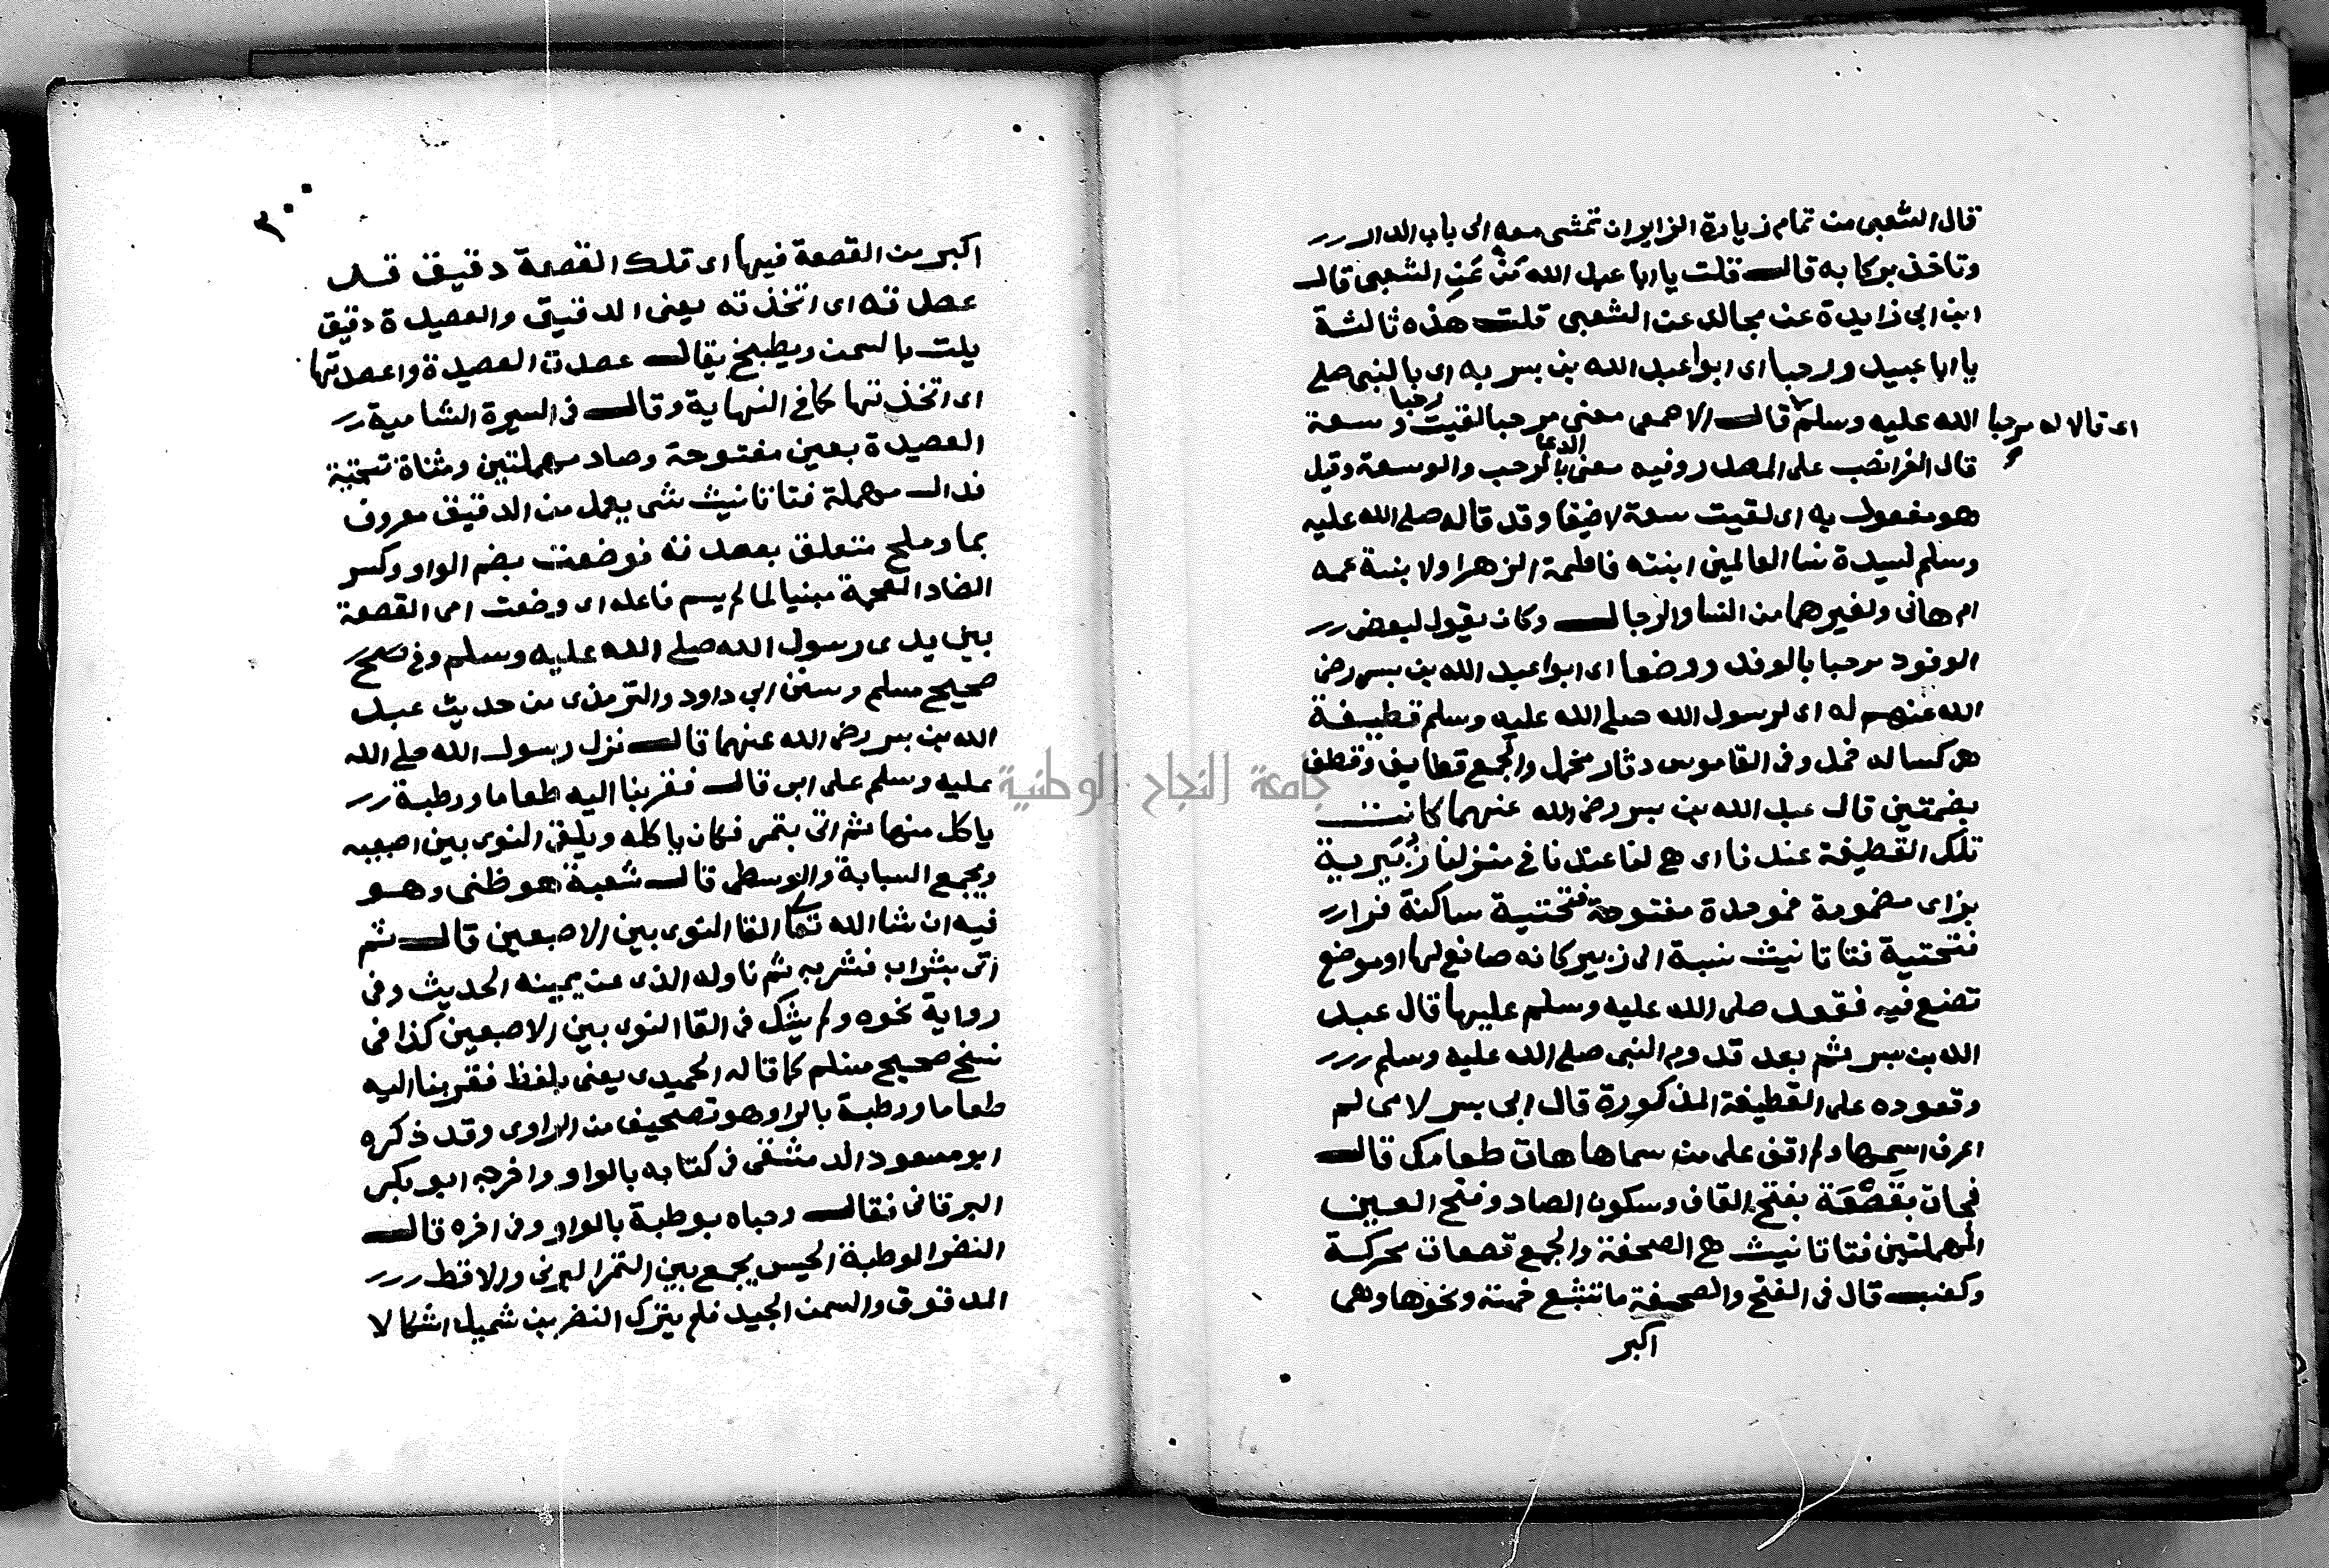 قال الشعبى من تمام زيارة الزاير ان تمشى معه الى باب الدار
وتاخذ بركابه قال قلت يا ابا عبد الله مَنْ عَنِ الشعبى قال
ابن ابى زايدة عن مجالد عن الشعبى قلت هذه ثالثة
يا ابا عبيد ورحبا اى ابوا عبد الله بن بسر به اى بالنبى صلى
الله عليه وسلم قال الاصمعى معنى مرحبا لقيت رحبا وسعة
اى قالا له مرحبا
قال الفرا نصب على المصدر وفيه معنى الدعا بالرحب والوسعة وقيل
هو مفعول به اى لقيت سعة لا ضيقا وقد قاله صلى الله عليه
وسلم لسيدة نسا العالمين ابنته فاطمة الزهرا ولابنة عمه
ام هانى ولغيرهما من النسا والرجال وكان يقول لبعض
الوفود مرحبا بالوفد ووضعا اى ابوا عبد الله بن بسر رضى
الله عنهم له اى لرسول الله صلى الله عليه وسلم قطيفة
هى كسا له خمل وفى القاموس دثار مخمل والجمع قطايف وقطف
بضمتين قال عبد الله بن بسر رضى الله عنهما كانت
تلك القطيفة عندنا اى هى لنا عندنا فى منزلنا زُبَيرية
بزاى مضمومة فموحدة مفتوحة فتحتية ساكنة فرا
فتحتية فتا تانيث نسبة الى زبير كانه صانع لها او موضع
تصنع فيه فقعد صلى الله عليه وسلم عليها قال عبد
الله بن بسر ثم بعد قدوم النبى صلى الله عليه وسلم
وقعوده على القطيفة المذكورة قال ابى بسر لامى لم
اعرف اسمها ولم اقف على من سماها هات طعامك قال
فجات بقَصْعَة بفتح القاف وسكون الصاد وفتح العين
المهملتين فتا تانيث هى الصحفة والجمع قصعات محركة
وكعنب قال فى الفتح والصحفة ما تشبع خمسة ونحوها وهى
اكبر
٣٠٠
اكبر من القصعة فيها اى تلك القصعة دقيق قد
عصدته اى اتخذته يعنى الدقيق والعصيدة دقيق
يلت بالسمن ويطبخ يقال عصدت العصيدة واعصدتها
اى اتخذتها كما فى النهاية وقال فى السيرة الشامية
العصيدة بعين مفتوحة وصاد مهملتين ومثناة تحتية
فدال مهملة فتا تانيث شى يعمل من الدقيق معروف
بما وملح متعلق بعصدته فوضعت بضم الواو وكسر
الضاد المعجمة مبنيا لما لم يسم فاعله اى وضعت امى القصعة
بين يدى رسول الله صلى الله عليه وسلم وفى
صحيح مسلم وسنن ابى داود والترمذى من حديث عبد
الله بن بسر رضى الله عنهما قال نزل رسول الله صلى الله
عليه وسلم على ابى قال فقربنا اليه طعاما ورطبة
ياكل منها ثم اتى بتمر فكان ياكله ويلقى النوى بين اصبعيه
ويجمع السبابة والوسطى قال شعبة هو ظنى وهو
فيه ان شا الله تعالى القا النوى بين الاصبعين قال ثم
اتى بشراب فشربه ثم ناوله الذى عن يمينه الحديث وفى
رواية نحوه ولم يشك فى القا النوى بين الاصبعين كذا فى
نسخ صحيح مسلم كما قاله الحميدى يعنى بلفظ فقربنا اليه
طعاما ورطبة بالرا وهو تصحيف من الراوى وقد ذكره
ابو مسعود الدمشقى فى كتابه بالواو واخرجه ابو بكر
البرقانى فقال وحباه بوطبة بالواو وفى اخره قال
النضر الوطبة الحيس يجمع بين التمر البرنى والاقط
المدقوق والسمن الجيد فلم يترك النضر بن شميل اشكالا
جامعة النجاح الوطنية